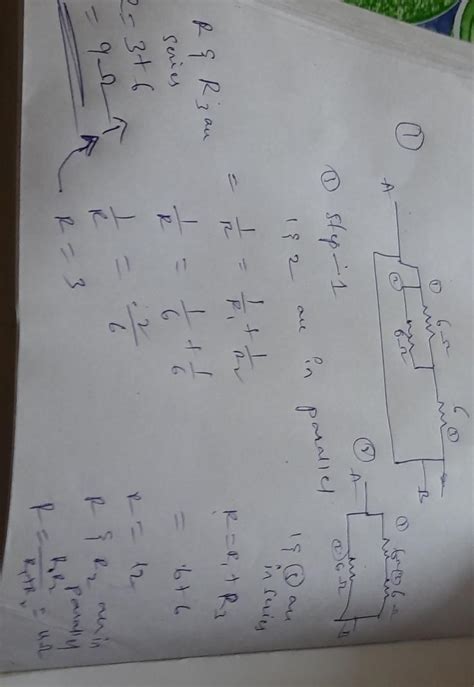 ①
A
① 6Ω
② 6Ω
6
③
B
① step-1
1 & 2 are in parallel
= 1/R = 1/R₁ + 1/R₂
1/R = 1/6 + 1/6
1/R = 2/6
R = 3
R & R₃ are
series
R = 3+6
= 9Ω
A
① 6Ω ③ 6Ω
② 6Ω
B
1 & ③ are
in series
R = R₁ + R₃
= 6+6
R = 12
R & R₂ are in
parallel
R = R R₂/R+R₂ = 4Ω